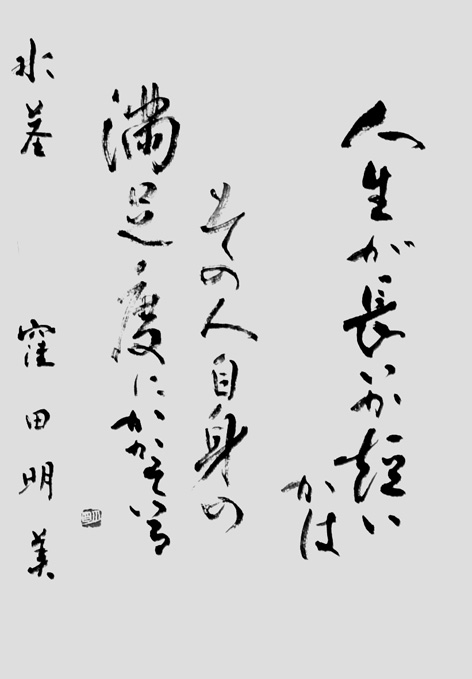 人生が長いか短い
かは
その人自身の
満足度にかかっている
水茎
窪田明美